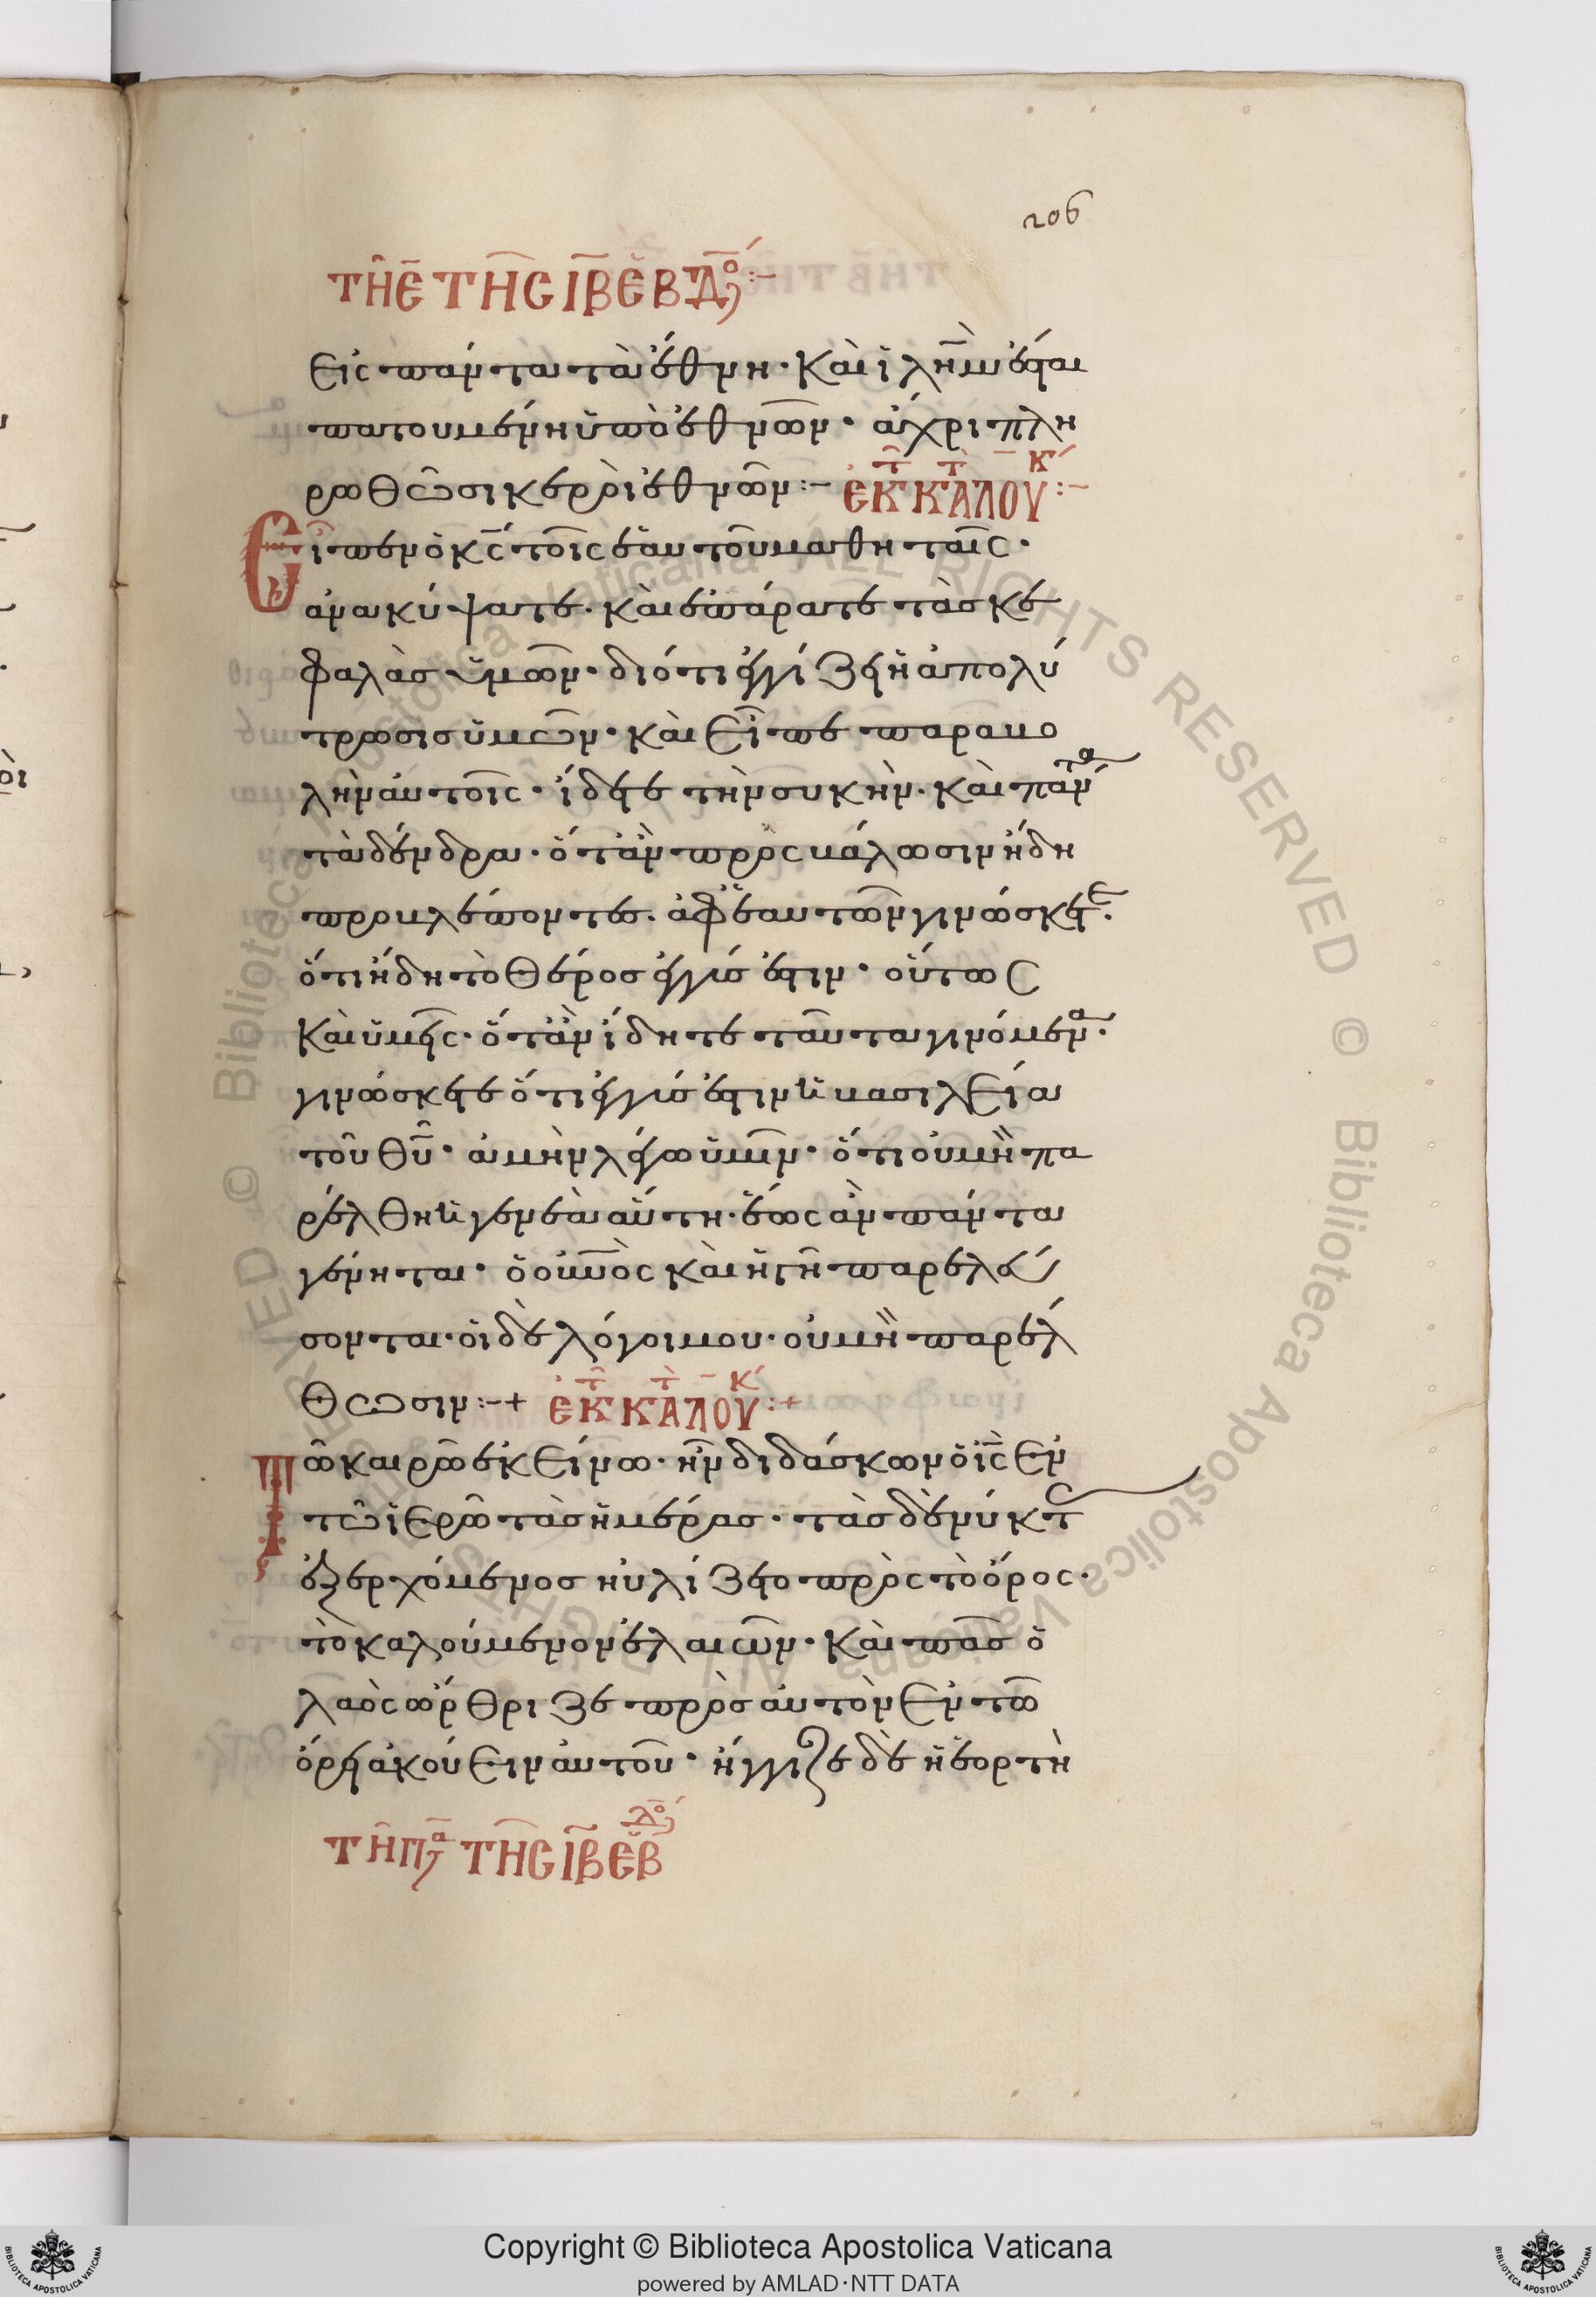 206
τῆ ε̄ τῆς ιβ ἑβδο :-
εἰς πάντα τὰ ἔθνη· καὶ ἰλῆμ ἔσται
πατουμένη ὑπὸ ἐθνῶν· ἄχρι πλη
ρωθῶσι κερροὶ ἐθνῶν :- ἐκ τ κ τ ὰ λου κ :-
Εἶπεν ὁ κς τοῖς ἑαυτοῦ μαθηταῖς·
ἀνακύψατε· καὶ ἐπάρατε τὰς κε
φαλὰσ ὑμῶν· διότι ἐγγίζει ἡ ἀπολύ
τρωσισ ὑμῶν· καὶ εἶπε παραβο
λὴν αὐτοῖς· ἴδετε τὴν συκὴν· καὶ πάντα
τὰ δένδρα· ὅτὰν προβάλωσιν ἤδη
προβλέποντες· ἀφ' ἑαυτῶν γινώσκετε·
ὅτι ἤδη τὸ θέροσ ἐγγύσ ἐστιν· οὕτως
καὶ ὑμεῖς· ὅτὰν ἴδητε ταῦτα γινόμενα·
γινώσκετε ὅτι ἐγγύσ ἐστιν ἡ βασιλεία
τοῦ θυ· ἀμὴν λέγω ὑμῖν· ὅτι οὐ μὴ πα
ρέλθη ἡ γενεὰ αὕτη· ἕως ἂν πάντα
γένηται· ὁ οὐνὸς καὶ ἡ γῆ παρελεύ
σονται· οἱ δὲ λόγοι μου· οὐ μὴ παρέλ
θωσιν :-+ ἐκ τ κ τ ὰ λου κ :+
Τῶ καιρῶ ἐκείνω· ἦν διδάσκων ὁ ις ἐν
τῶ ἱερῶ τὰσ ἡμέρας· τὰσ δὲ νύκτ
ἐξερχόμενοσ ηὐλίζετο πρὸς τὸ ὄρος·
τὸ καλούμενον ἐλαιῶν· καὶ πᾶσ ὁ
λαὸς ὤρθριζε πρὸσ αὐτὸν ἐν τῶ
ὄρει ἀκούειν αὐτοῦ· ἤγγιζε δὲ ἡ ἑορτὴ
τῆ πα τῆς ιβ ἑβδο
Copyright © Biblioteca Apostolica Vaticana
powered by AMLAD·NTT DATA